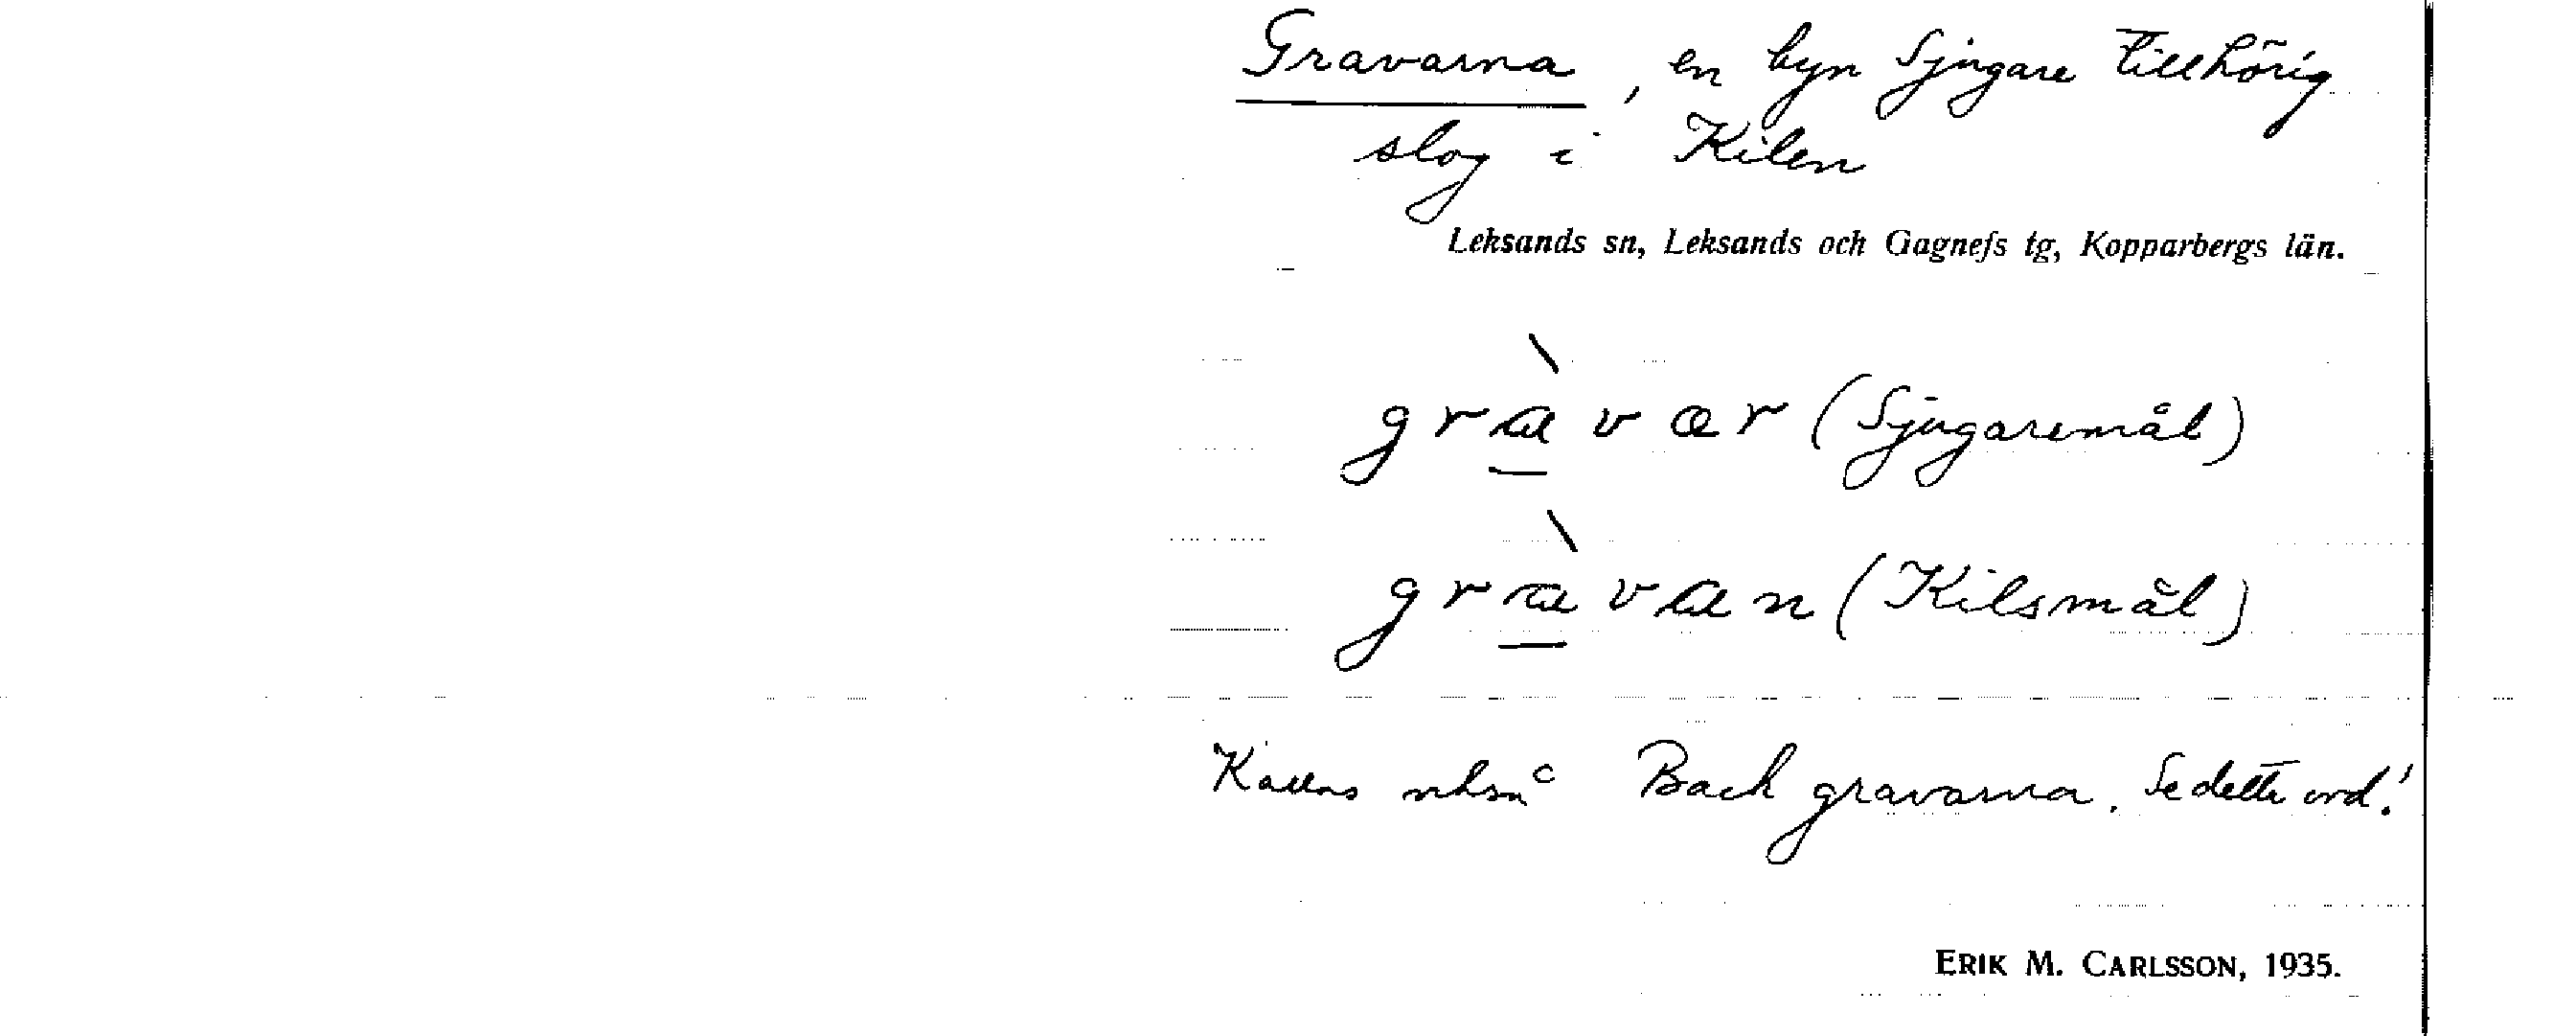 Gravarna, en byn Sjugare tillhörig
slog i Kilen
Leksands sn, Leksands och Gagnefs tg, Kopparbergs län.
gràvar (Sjugaremål)
gràvan (Kilsmål)
Kallas också Back gravarna. Se detta ord!
ERIK M. CARLSSON, 1935.